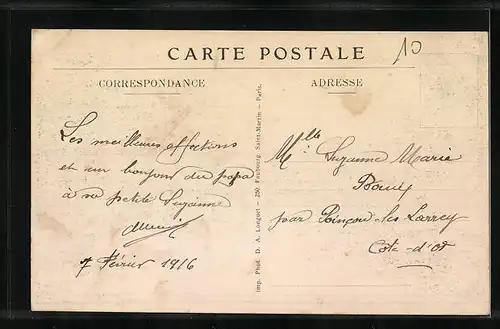 CARTE POSTALE
10
CORRESPONDANCE
ADRESSE
Les meilleures affections
et un bonjour du papa
à sa petite Suzanne
7 Février 1916
Mlle Suzanne Marie
par Poinçon-les-Larrey
Côte-d'Or
Imp. Phot. D. A. Longuet — 250, Faubourg Saint-Martin — Paris.